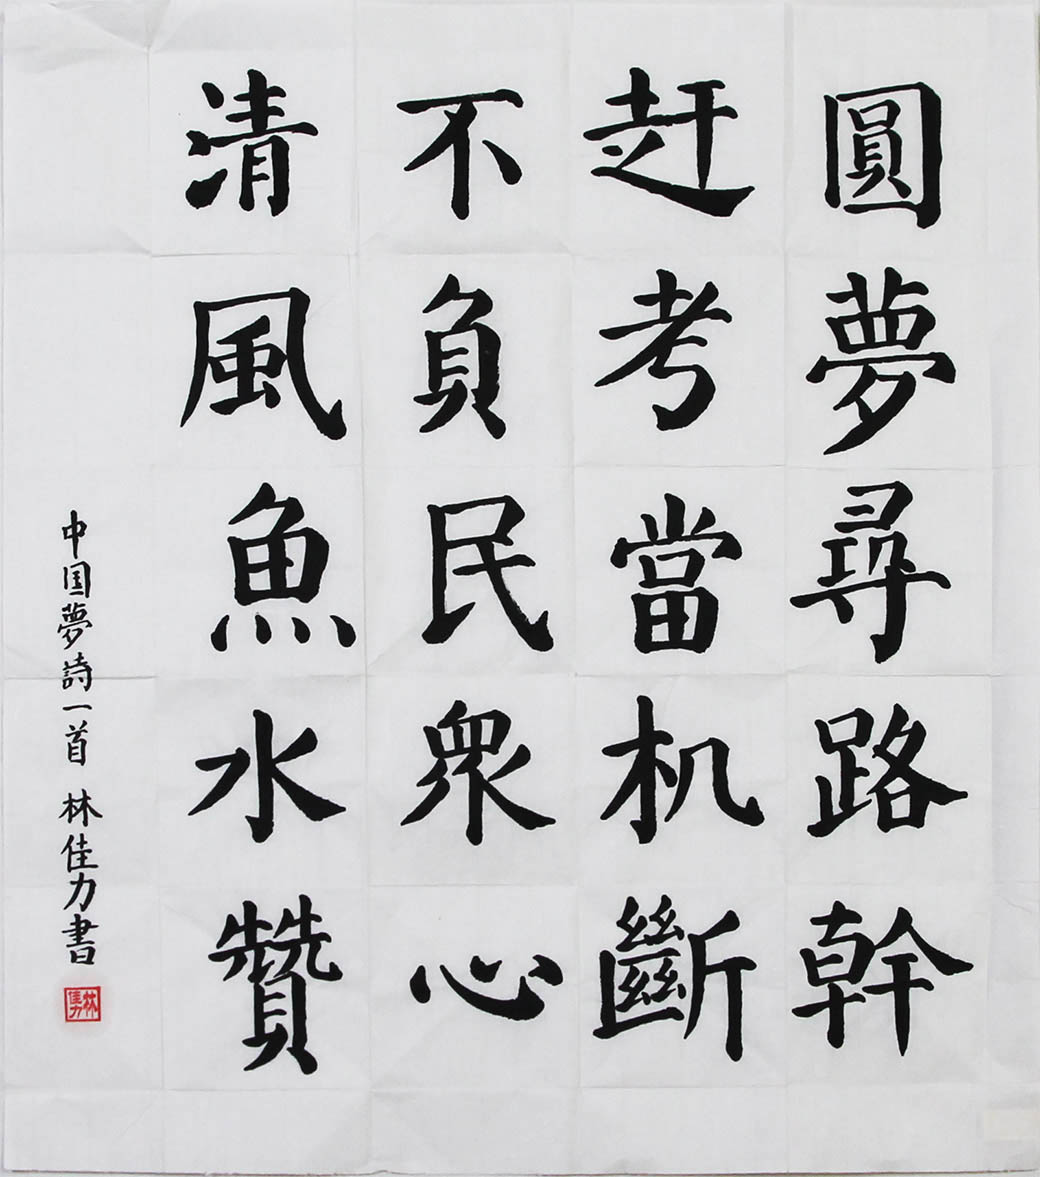 圓夢尋路幹
赶考當机斷
不負民眾心
清風魚水贊
中国夢詩一首 林佳力書